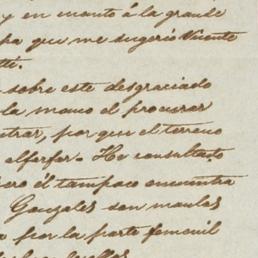 y en cuanto á la grande
que me sugerio Vicente
sobre este desgraciado
la mano el procurar
trar, por que el terreno
alferfor. He consultado
ero él tampoco encuentra
Gonzales son maulas
por la parte femenil